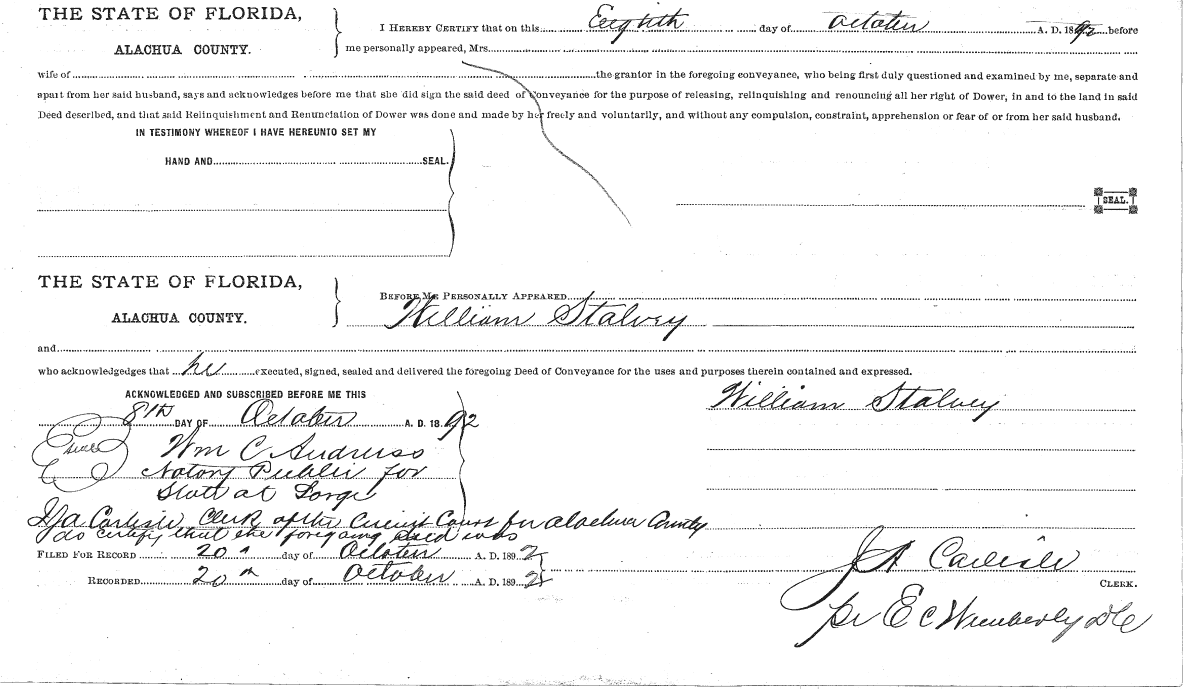 THE STATE OF FLORIDA,
ALACHUA COUNTY.
I HEREBY CERTIFY that on this Eighth day of October A. D. 1892 before
me personally appeared, Mrs.
wife of the grantor in the foregoing conveyance, who being first duly questioned and examined by me, separate and
apart from her said husband, says and acknowledges before me that she did sign the said deed of Conveyance for the purpose of releasing, relinquishing and renouncing all her right of Dower, in and to the land in said
Deed described, and that said Relinquishment and Renunciation of Dower was done and made by her freely and voluntarily, and without any compulsion, constraint, apprehension or fear of or from her said husband.
IN TESTIMONY WHEREOF I HAVE HEREUNTO SET MY
HAND AND SEAL.
SEAL.
THE STATE OF FLORIDA,
ALACHUA COUNTY.
BEFORE ME PERSONALLY APPEARED
William Stalvey
and
who acknowledgedges that he executed, signed, sealed and delivered the foregoing Deed of Conveyance for the uses and purposes therein contained and expressed.
ACKNOWLEDGED AND SUBSCRIBED BEFORE ME THIS
8th DAY OF October A. D. 1892
William Stalvey
Wm C Andruss
Notary Public for
State at Large
I J A Carlisle, Clerk of the Circuit Court for Alachua County
do certify that the foregoing deed was
FILED FOR RECORD 20th day of October A. D. 1892
RECORDED 20th day of October A. D. 1892
J A Carlisle
CLERK.
pr E C Wimberly DC